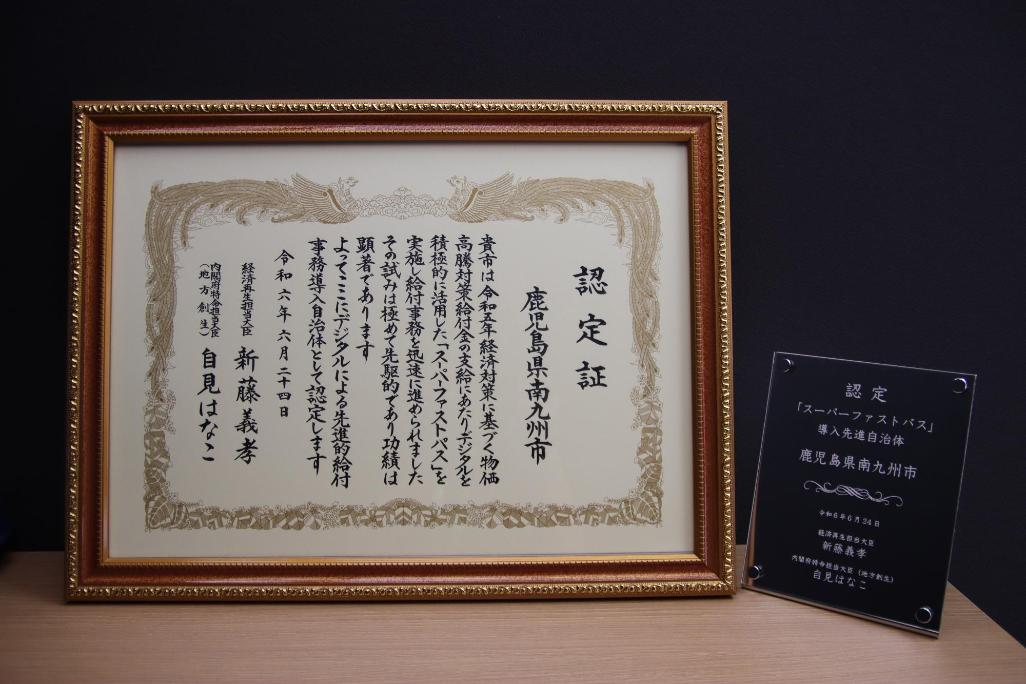 認定証
鹿児島県南九州市
貴市は令和五年経済対策に基づく物価
高騰対策給付金の支給にあたりデジタルを
積極的に活用した「スーパーファストパス」を
実施し給付事務を迅速に進められました
その試みは極めて先駆的であり功績は
顕著であります
よってここにデジタルによる先進的給付
事務導入自治体として認定します
令和六年六月二十四日
経済再生担当大臣 新藤義孝
内閣府特命担当大臣
（地方創生） 自見はなこ
認定
「スーパーファストパス」
導入先進自治体
鹿児島県南九州市
令和6年6月24日
経済再生担当大臣
新藤義孝
内閣府特命担当大臣（地方創生）
自見はなこ